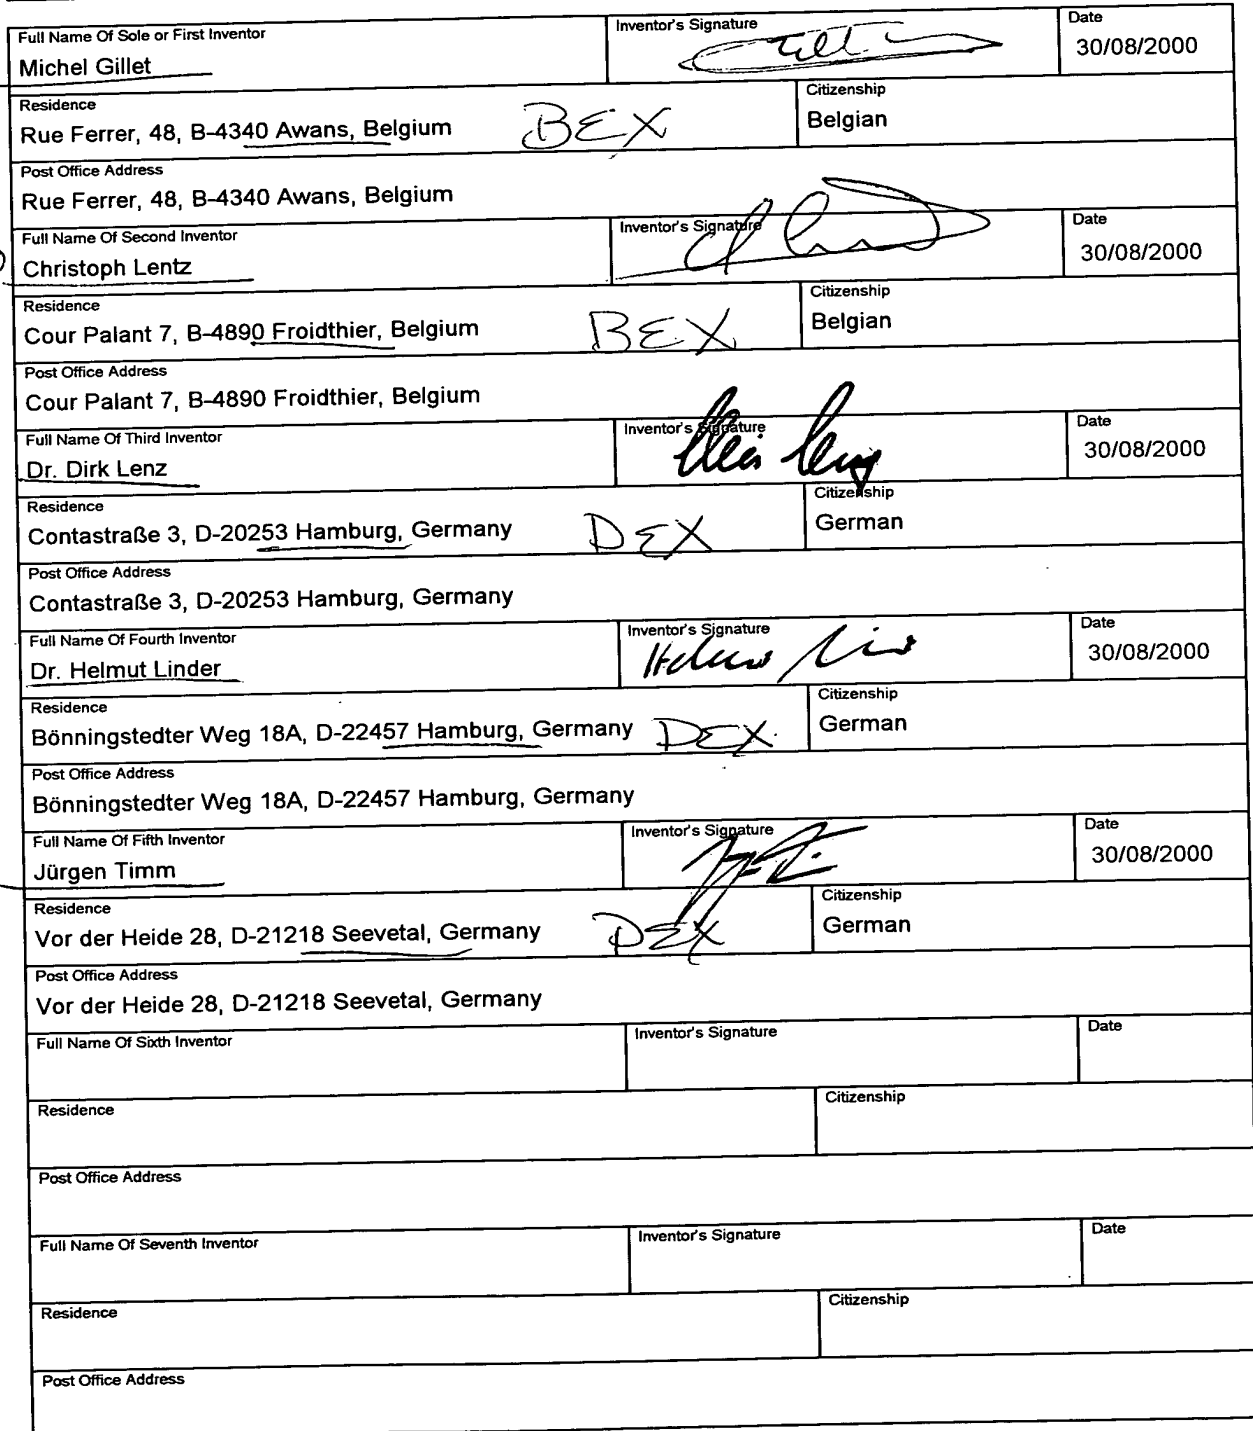 Full Name Of Sole or First Inventor
Michel Gillet
Inventor's Signature
Date
30/08/2000
Residence
Rue Ferrer, 48, B-4340 Awans, Belgium
BEX
Citizenship
Belgian
Post Office Address
Rue Ferrer, 48, B-4340 Awans, Belgium
Full Name Of Second Inventor
Christoph Lentz
Inventor's Signature
Date
30/08/2000
Residence
Cour Palant 7, B-4890 Froidthier, Belgium
BEX
Citizenship
Belgian
Post Office Address
Cour Palant 7, B-4890 Froidthier, Belgium
Full Name Of Third Inventor
Dr. Dirk Lenz
Inventor's Signature
Date
30/08/2000
Residence
Contastraße 3, D-20253 Hamburg, Germany
DEX
Citizenship
German
Post Office Address
Contastraße 3, D-20253 Hamburg, Germany
Full Name Of Fourth Inventor
Dr. Helmut Linder
Inventor's Signature
Date
30/08/2000
Residence
Bönningstedter Weg 18A, D-22457 Hamburg, Germany
DEX
Citizenship
German
Post Office Address
Bönningstedter Weg 18A, D-22457 Hamburg, Germany
Full Name Of Fifth Inventor
Jürgen Timm
Inventor's Signature
Date
30/08/2000
Residence
Vor der Heide 28, D-21218 Seevetal, Germany
DEX
Citizenship
German
Post Office Address
Vor der Heide 28, D-21218 Seevetal, Germany
Full Name Of Sixth Inventor
Inventor's Signature
Date
Residence
Citizenship
Post Office Address
Full Name Of Seventh Inventor
Inventor's Signature
Date
Residence
Citizenship
Post Office Address